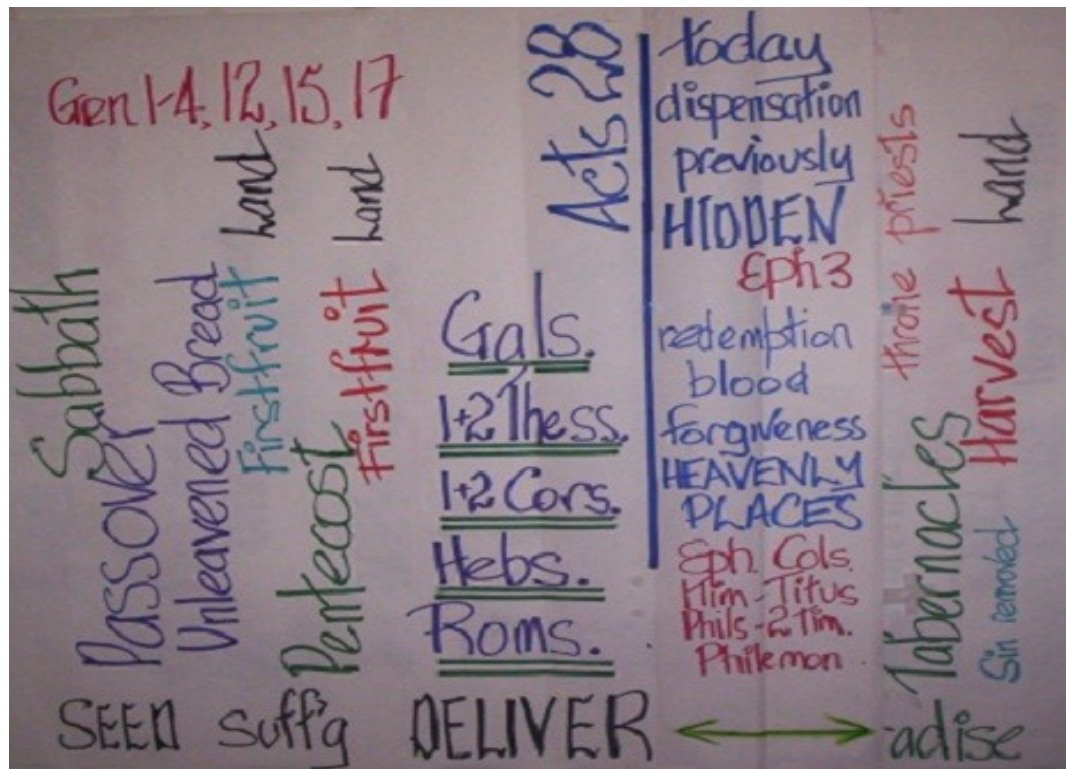 Gen 1-4, 12, 15, 17
Sabbath
Passover
Unleavened Bread
Firstfruit Land
Pentecost
Firstfruit Land
Acts 28
Gals.
1+2 Thess.
1+2 Cors.
Hebs.
Roms.
today
dispensation
previously
HIDDEN
Eph 3
redemption
blood
forgiveness
HEAVENLY
PLACES
Eph. Cols.
1Tim - Titus
Phils - 2 Tim.
Philemon
throne priests
Tabernacles
Harvest Land
Sin removed
SEED Suff'g DELIVER adise